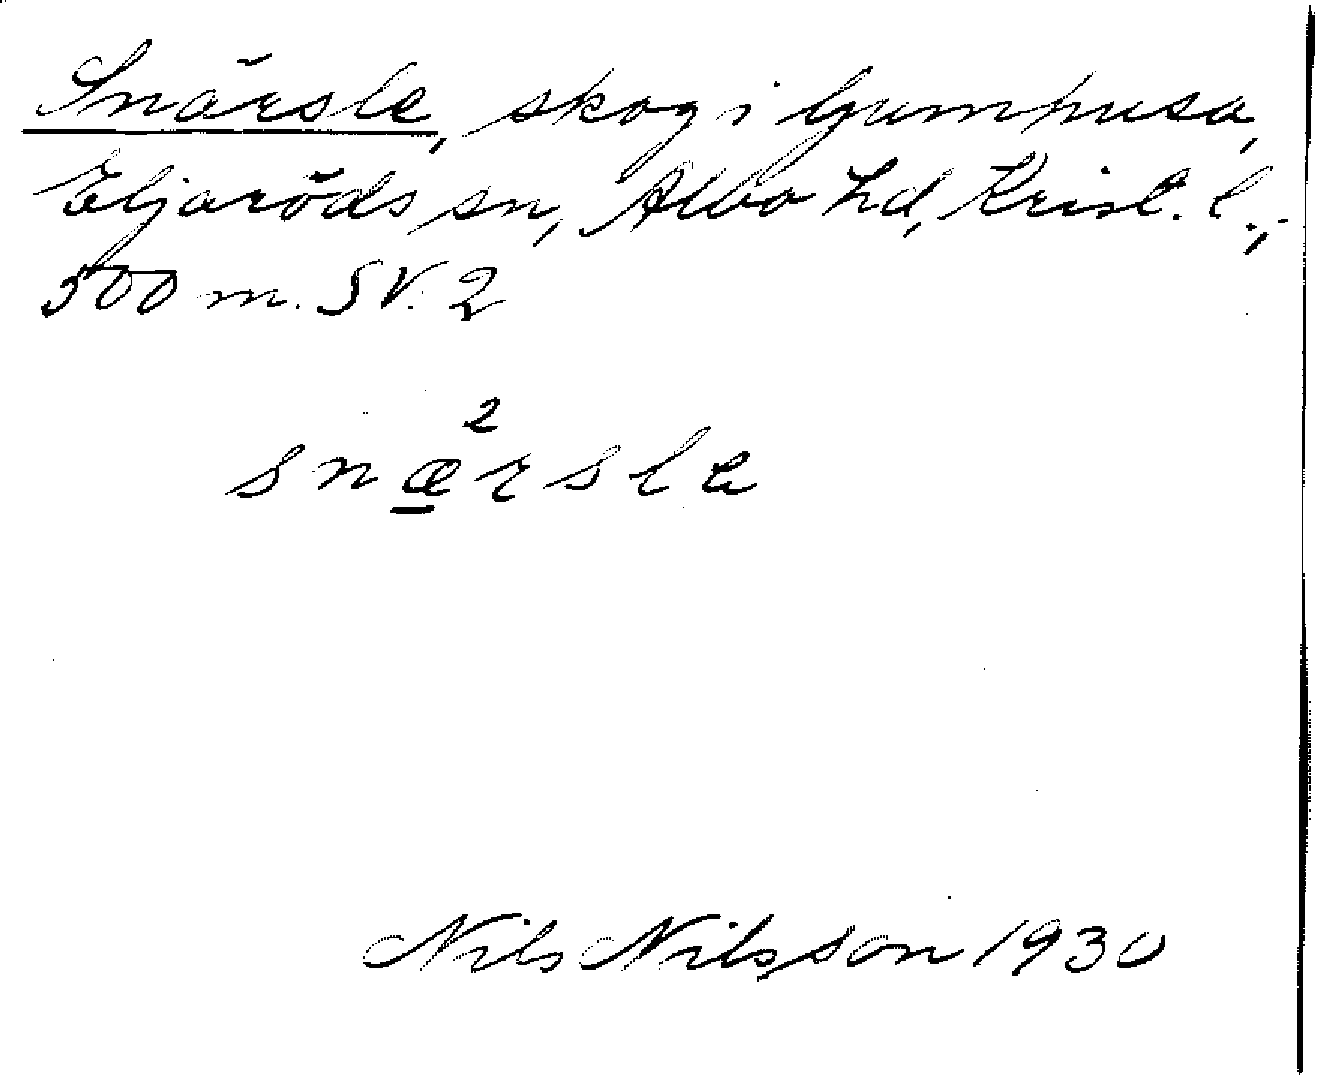 Snärsle, skog i Gumhusa,
Eljaröds sn, Albo hd, Krist. l.,
500 m. SV. 2
2
snærsle
Nils Nilsson 1930